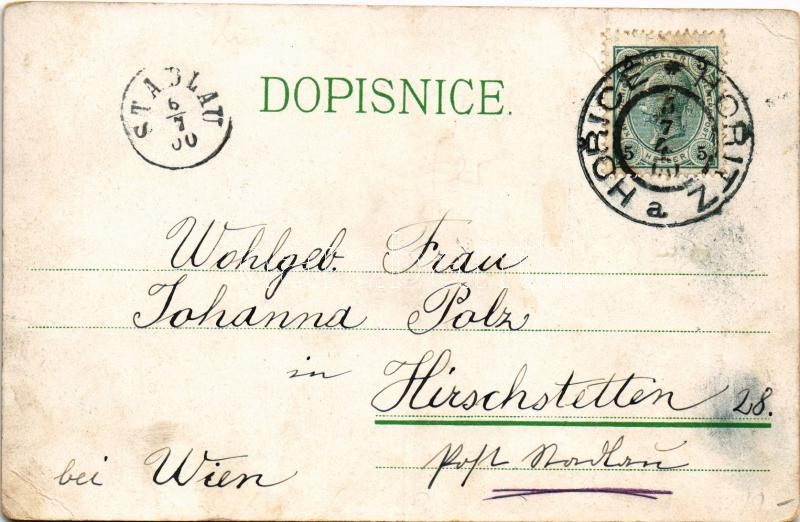 DOPISNICE.
STADLAU
6/7
00
HOŘICE * HORITZ
a
5
7
HELLER
5 HELLER 5
Wohlgeb. Frau
Johanna Polz
in Hirschstetten 28.
Post Stadlau
bei Wien